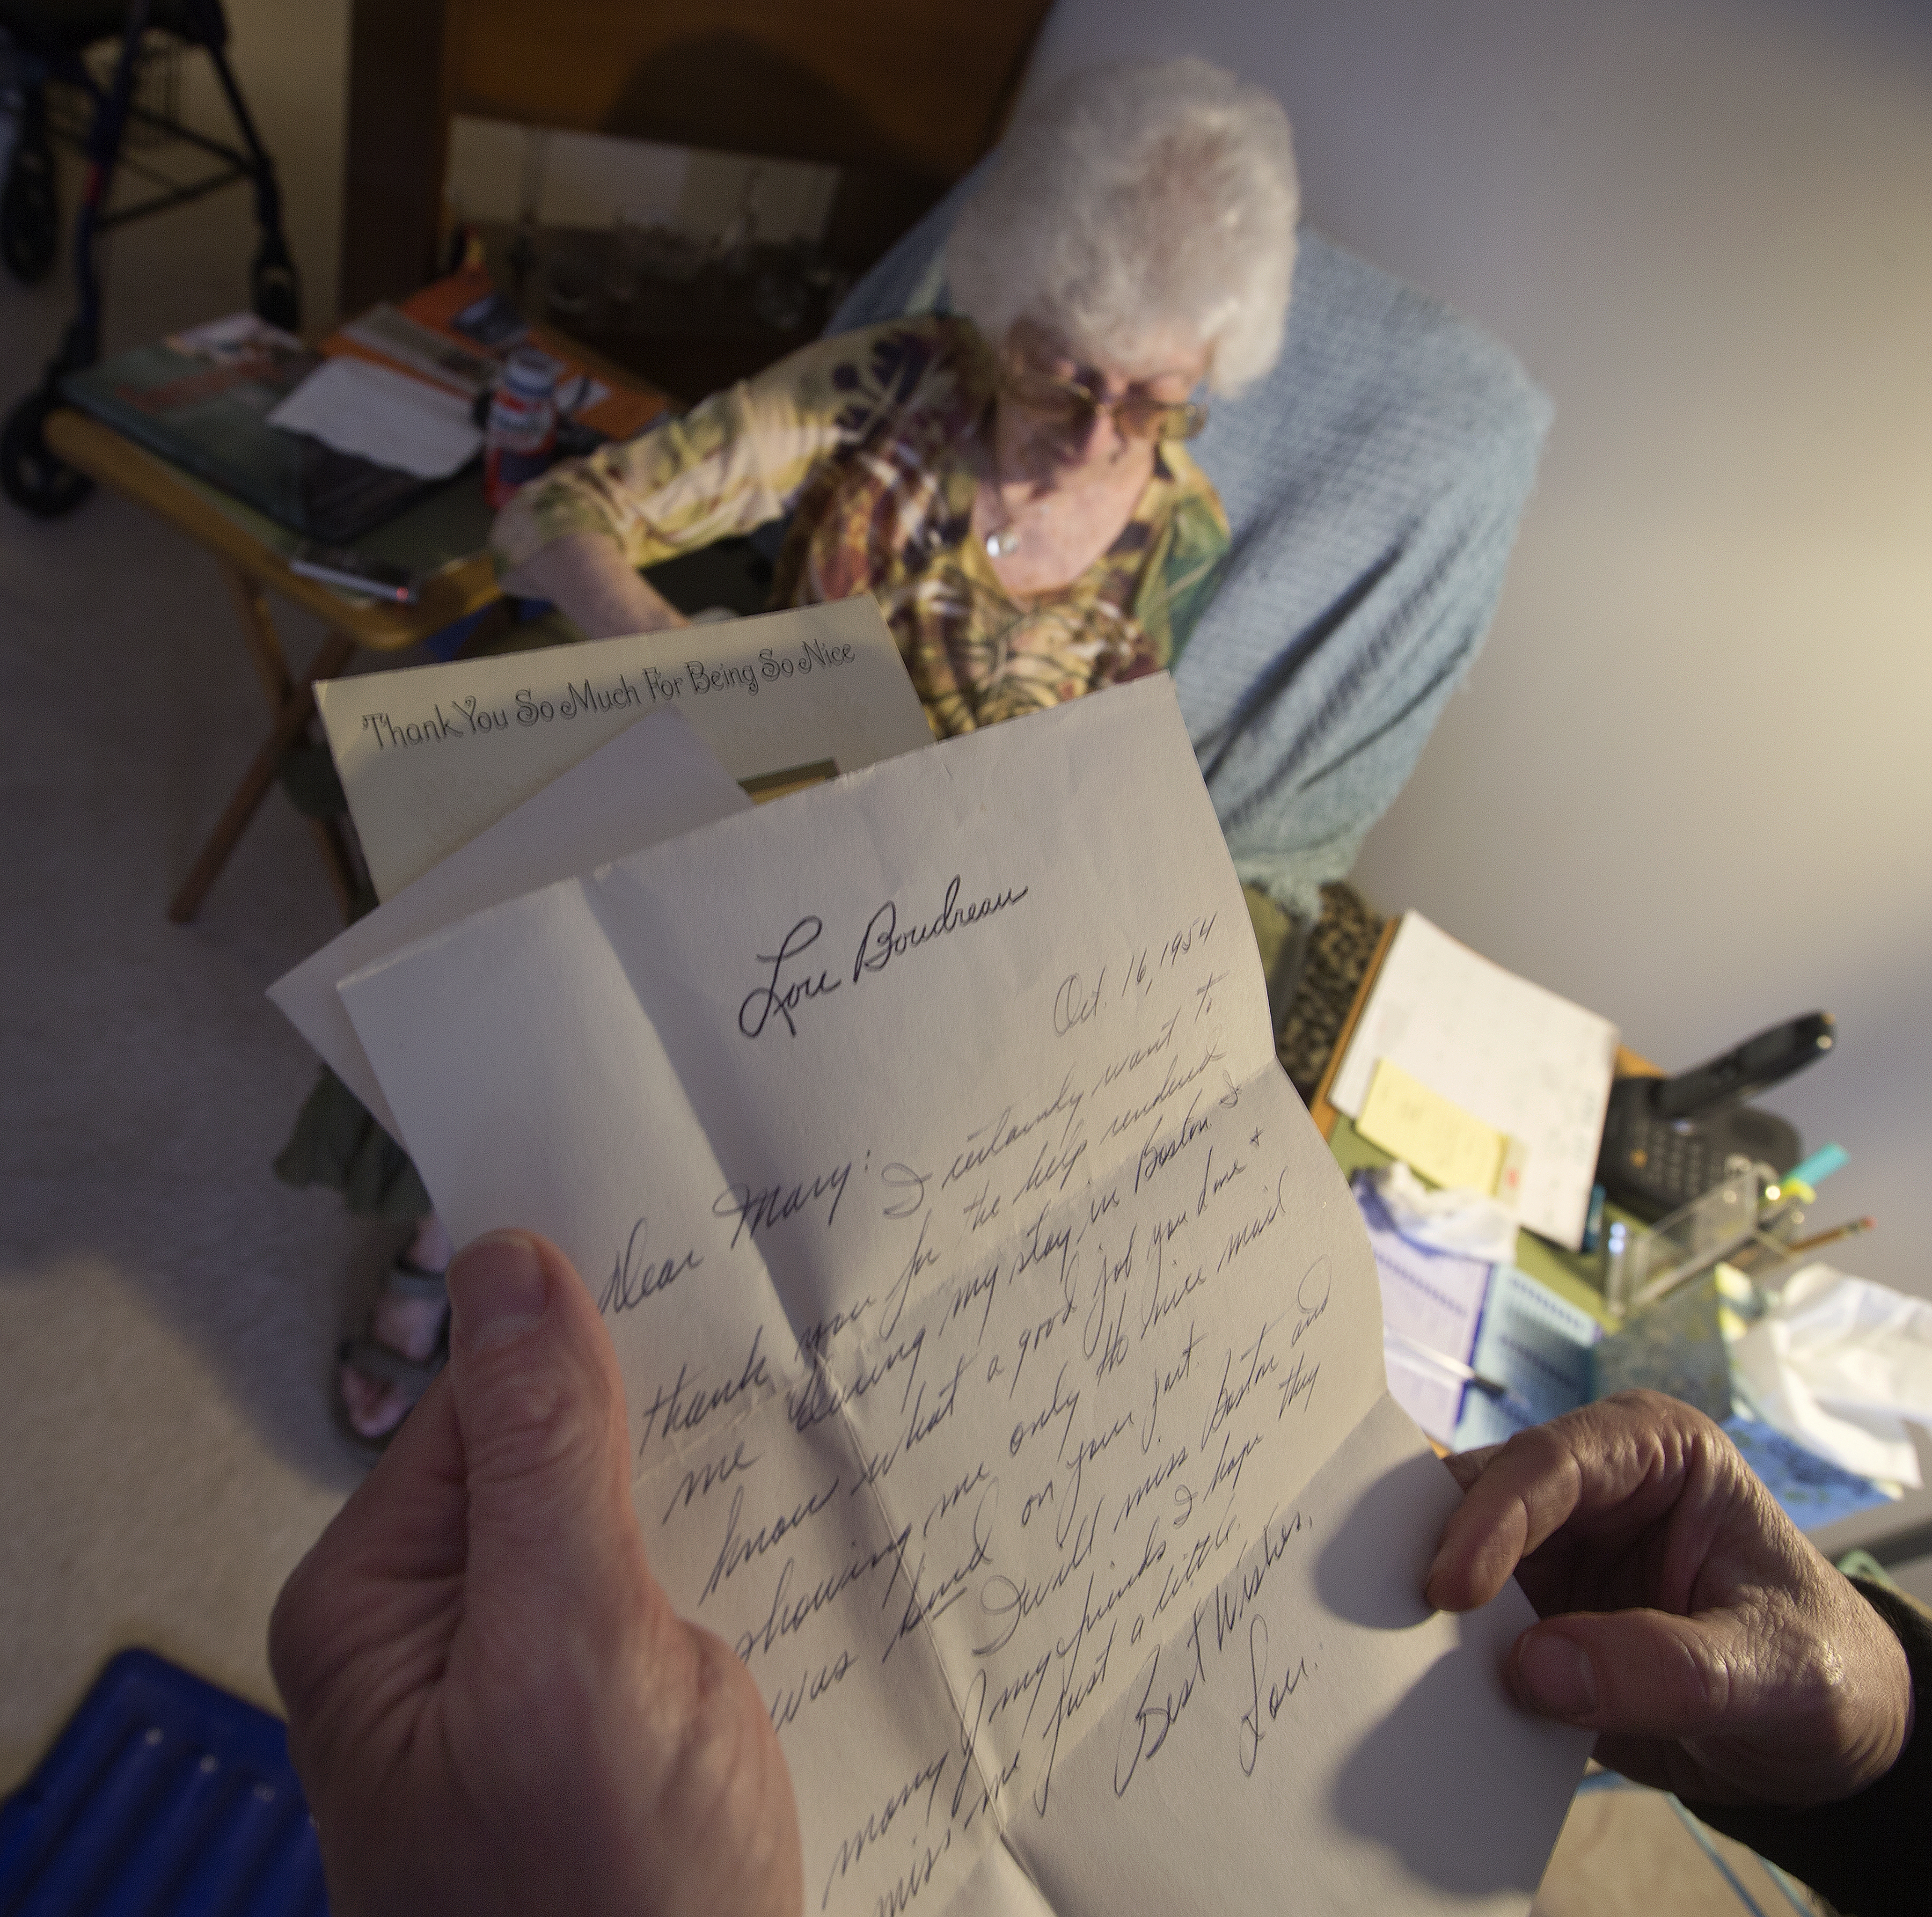 Thank You So Much For Being So Nice
Lou Boudreau
Oct. 16, 1954
Dear Mary:
I certainly want to
thank you for the help rendered
me during my stay in Boston. I
know what a good job you done +
showing me only the nice mail
was kind on your part.
I will miss Boston and
many of my friends I hope they
miss me just a little.
Best Wishes,
Lou.